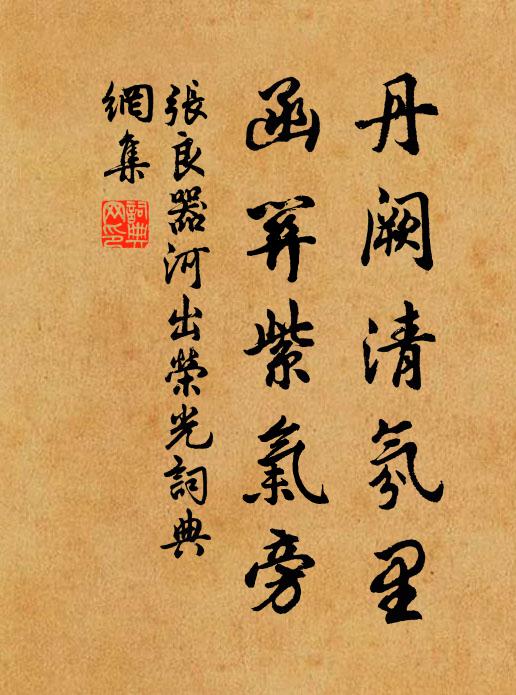 丹阙清氛里
函關紫氣旁
張良器河出榮光詞典
網集
詞典
网印